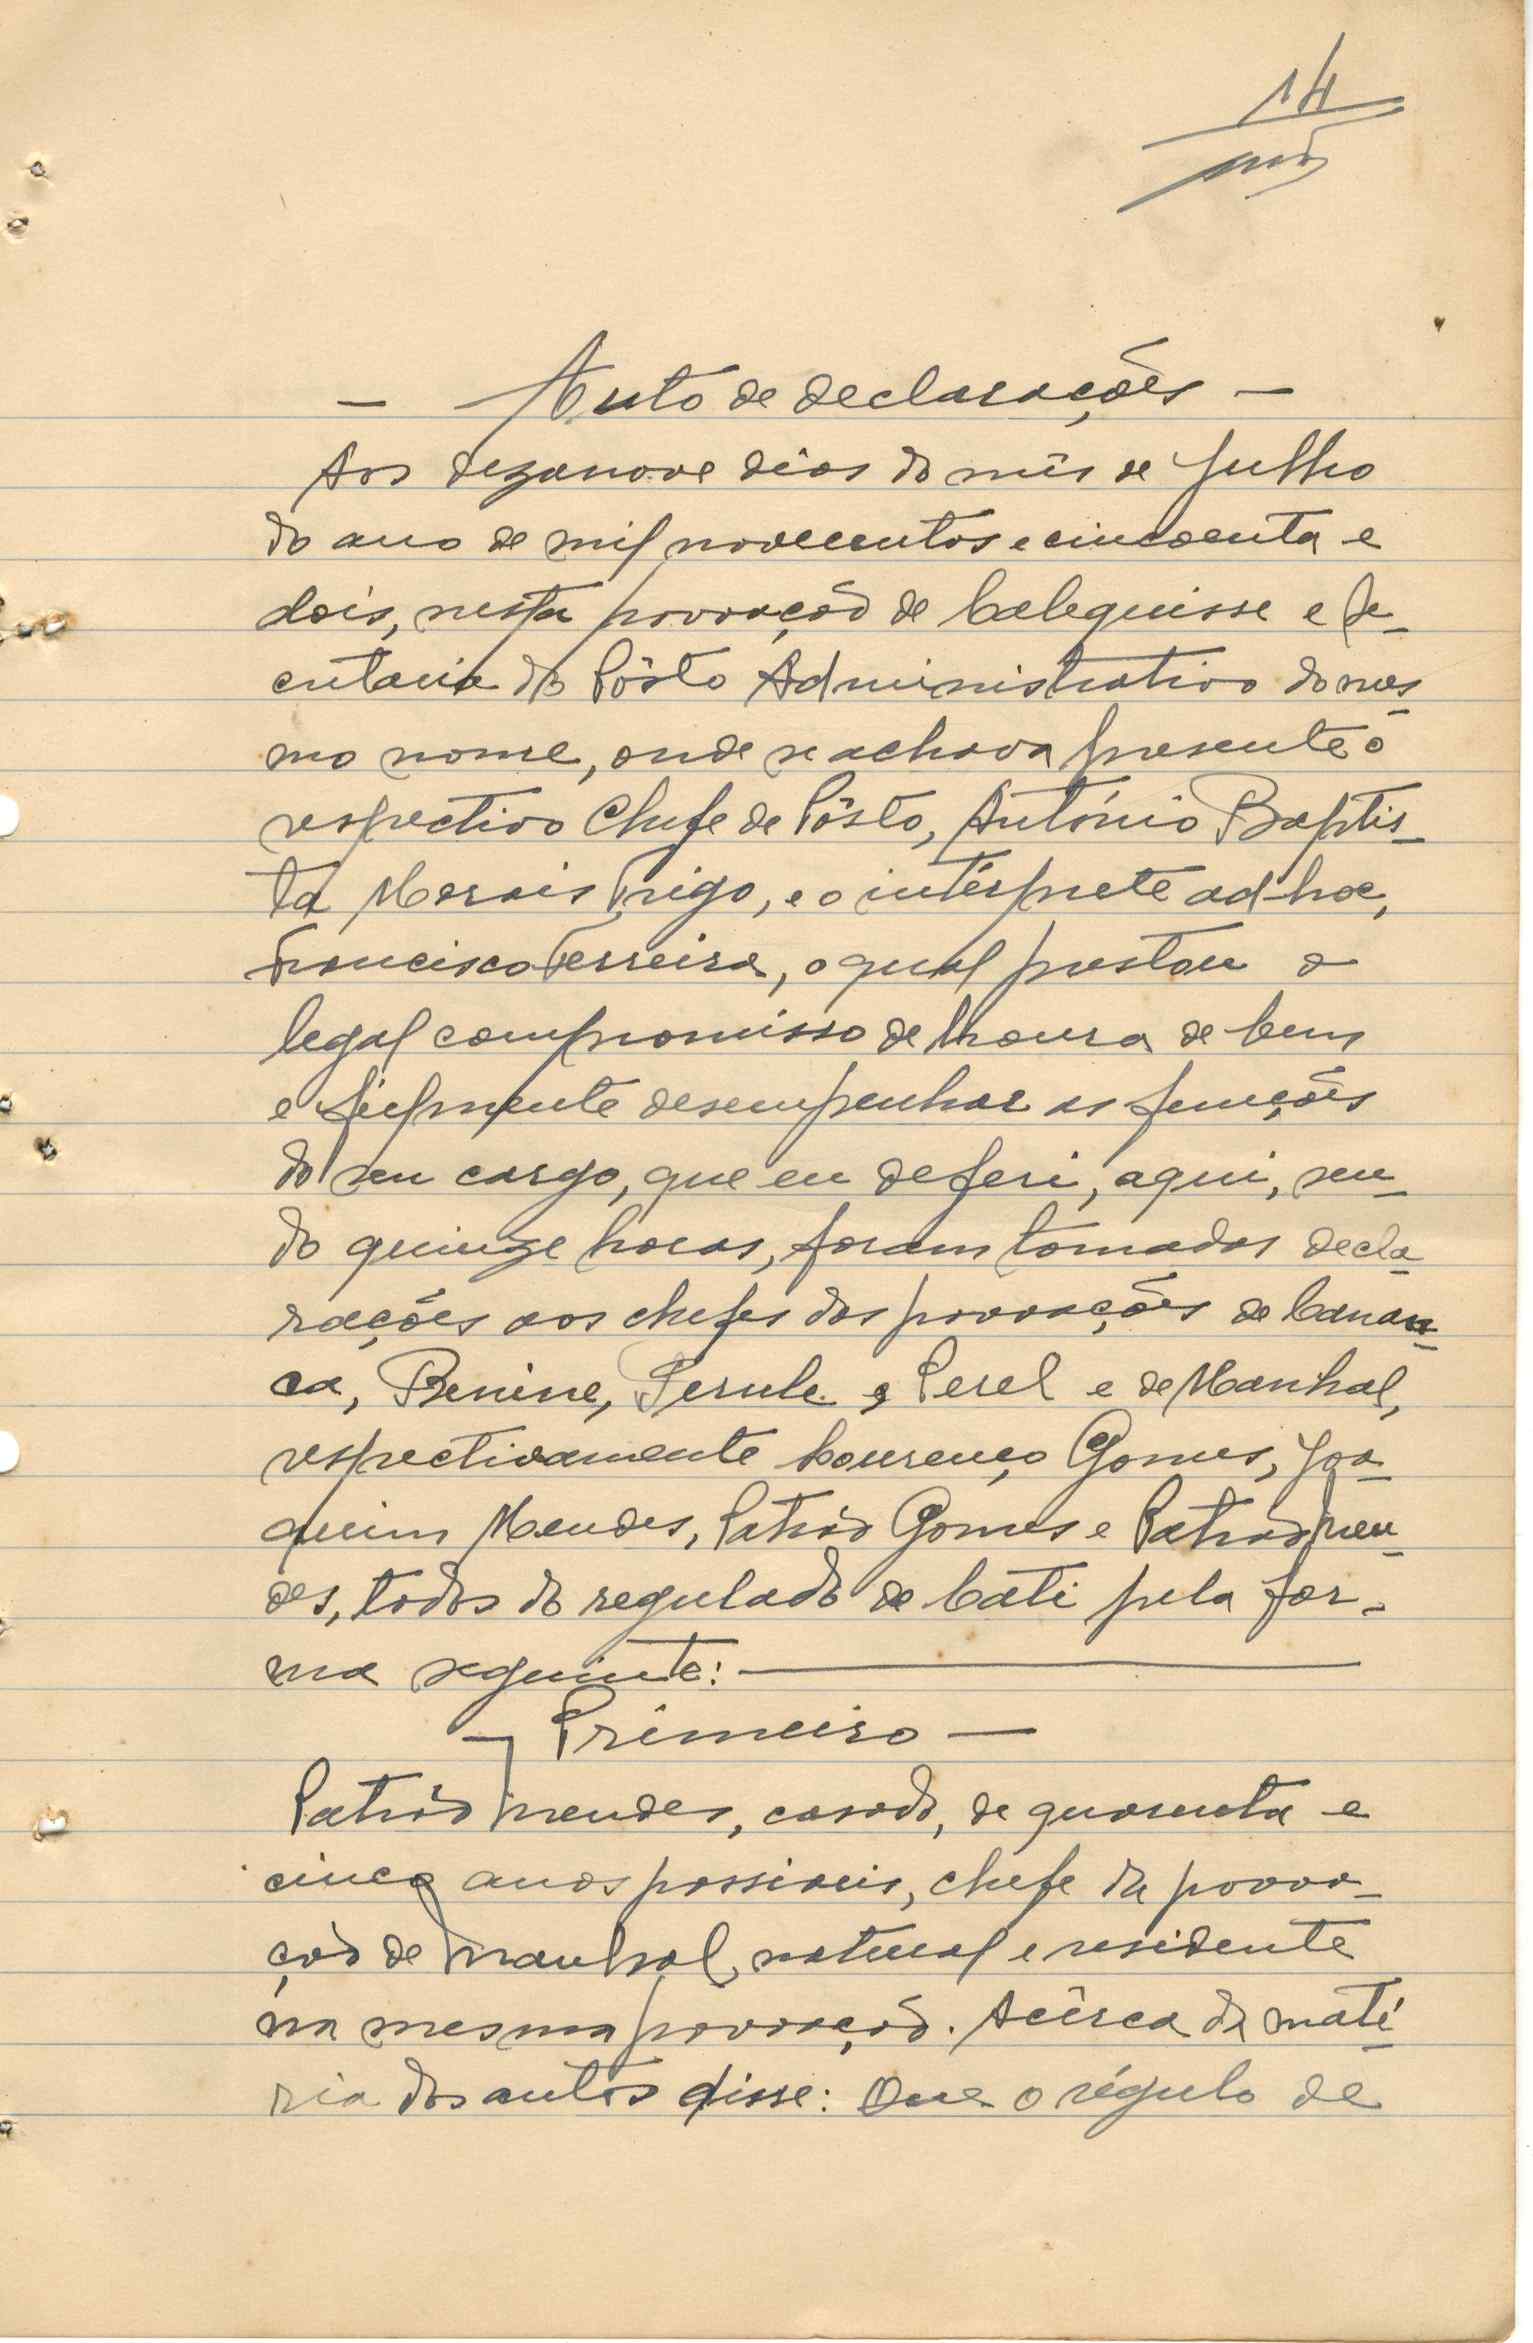 14
— Auto de declarações —
Aos dezanove dias do mês de Julho
do ano de mil novecentos e cincoenta e
dois, nesta povoação de Calequisse e se-
cretaria do Pôsto Administrativo do mes-
mo nome, onde se achava presente o
respectivo Chefe de Pôsto, António Baptis-
ta Morais Trigo, e o intérprete ad-hoc,
Francisco Ferreira, o qual prestou o
legal compromisso de honra de bem
e fielmente desempenhar as funções
do seu cargo, que eu deferi, aqui, sen-
do quinze horas, foram tomadas decla-
rações aos chefes das povoações de Canan-
ca, Benine, Perule e Perel e de Manhal,
respectivamente Lourenço Gomes, Joa-
quim Mendes, Patrão Gomes e Patrão Men-
des, todos do regulado de Cati pela for-
ma seguinte: —
— Primeiro —
Patrão Mendes, casado, de quarenta e
cinco anos possiveis, chefe da povoa-
ção de Manhal, natural e residente
na mesma povoação. Acêrca da maté-
ria dos autos disse: Que o régulo de